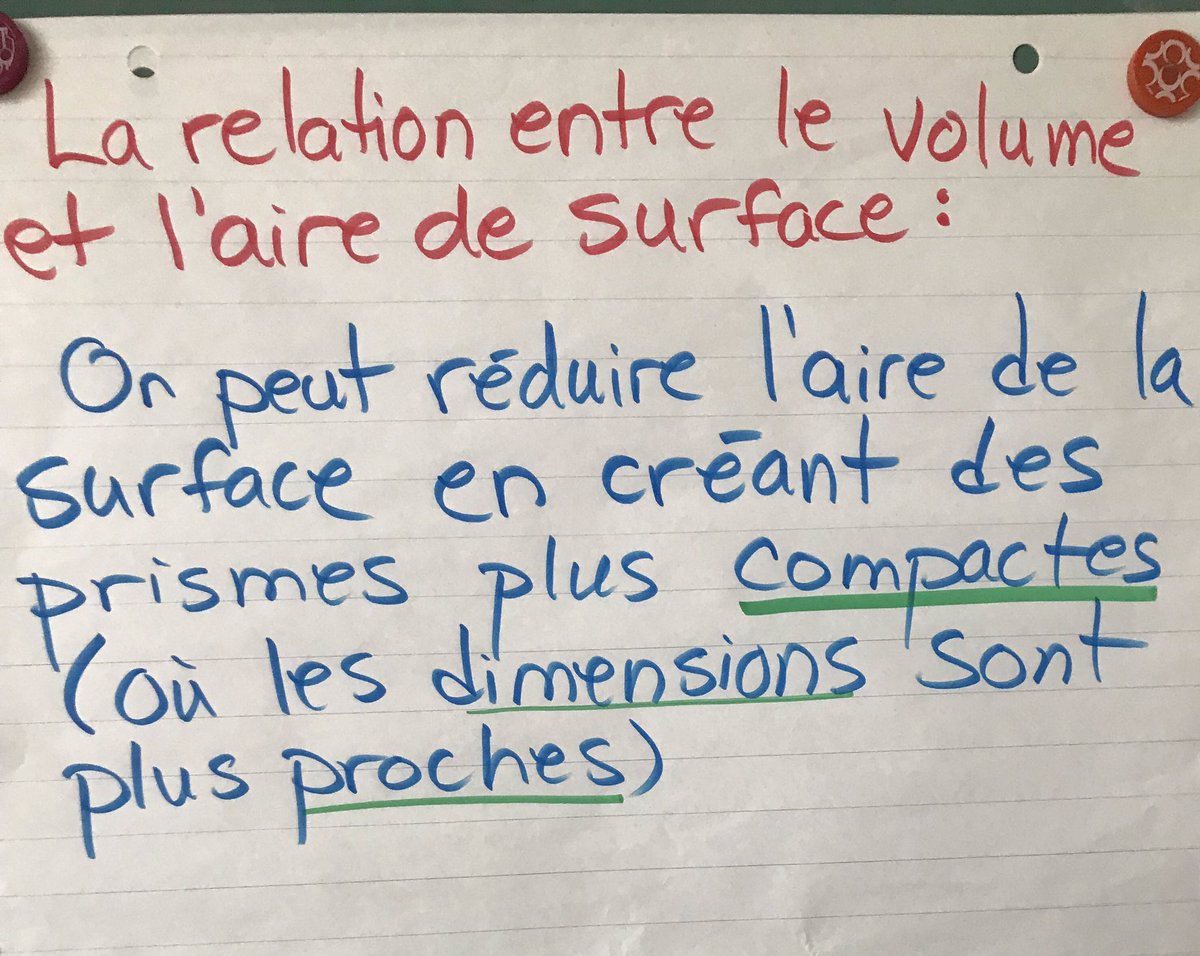 La relation entre le volume
et l'aire de surface :
On peut réduire l'aire de la
surface en créant des
prismes plus compactes
(où les dimensions sont
plus proches)